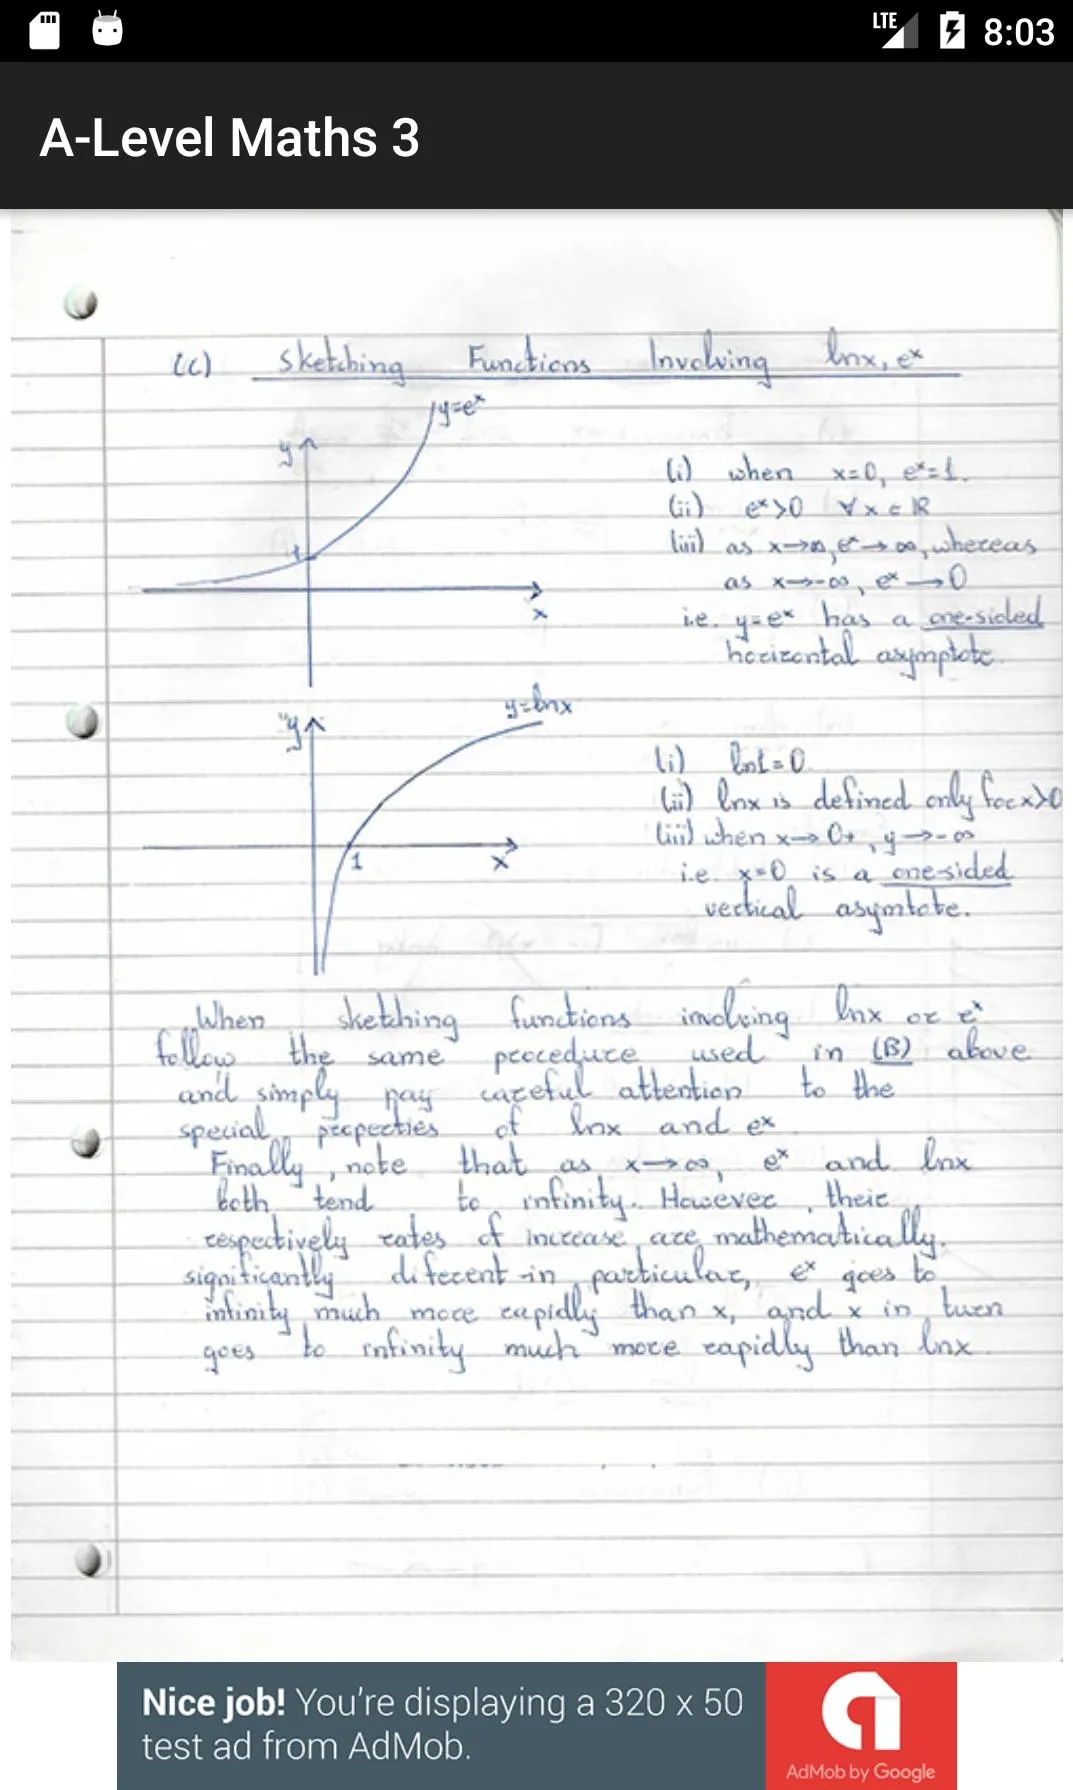 LTE 8:03
A-Level Maths 3
(C) Sketching Functions Involving lnx, eˣ
y=eˣ
y
1
x
(i) when x=0, eˣ=1.
(ii) eˣ>0 ∀ x ∈ ℝ
(iii) as x→∞, eˣ→∞, whereas
as x→-∞, eˣ→0
i.e. y=eˣ has a one-sided
horizontal asymptote.
y=lnx
y
1
x
(i) ln1=0.
(ii) lnx is defined only for x>0
(iii) when x→0+, y→-∞
i.e. x=0 is a one-sided
vertical asymtote.
When sketching functions involving lnx or eˣ
follow the same procedure used in (B) above
and simply pay careful attention to the
special properties of lnx and eˣ
Finally, note that as x→∞, eˣ and lnx
both tend to infinity. However, their
respectively rates of increase are mathematically.
significantly diferent-in particular, eˣ goes to
infinity much more rapidly than x, and x in turn
goes to infinity much more rapidly than lnx.
Nice job! You're displaying a 320 x 50
test ad from AdMob.
AdMob by Google